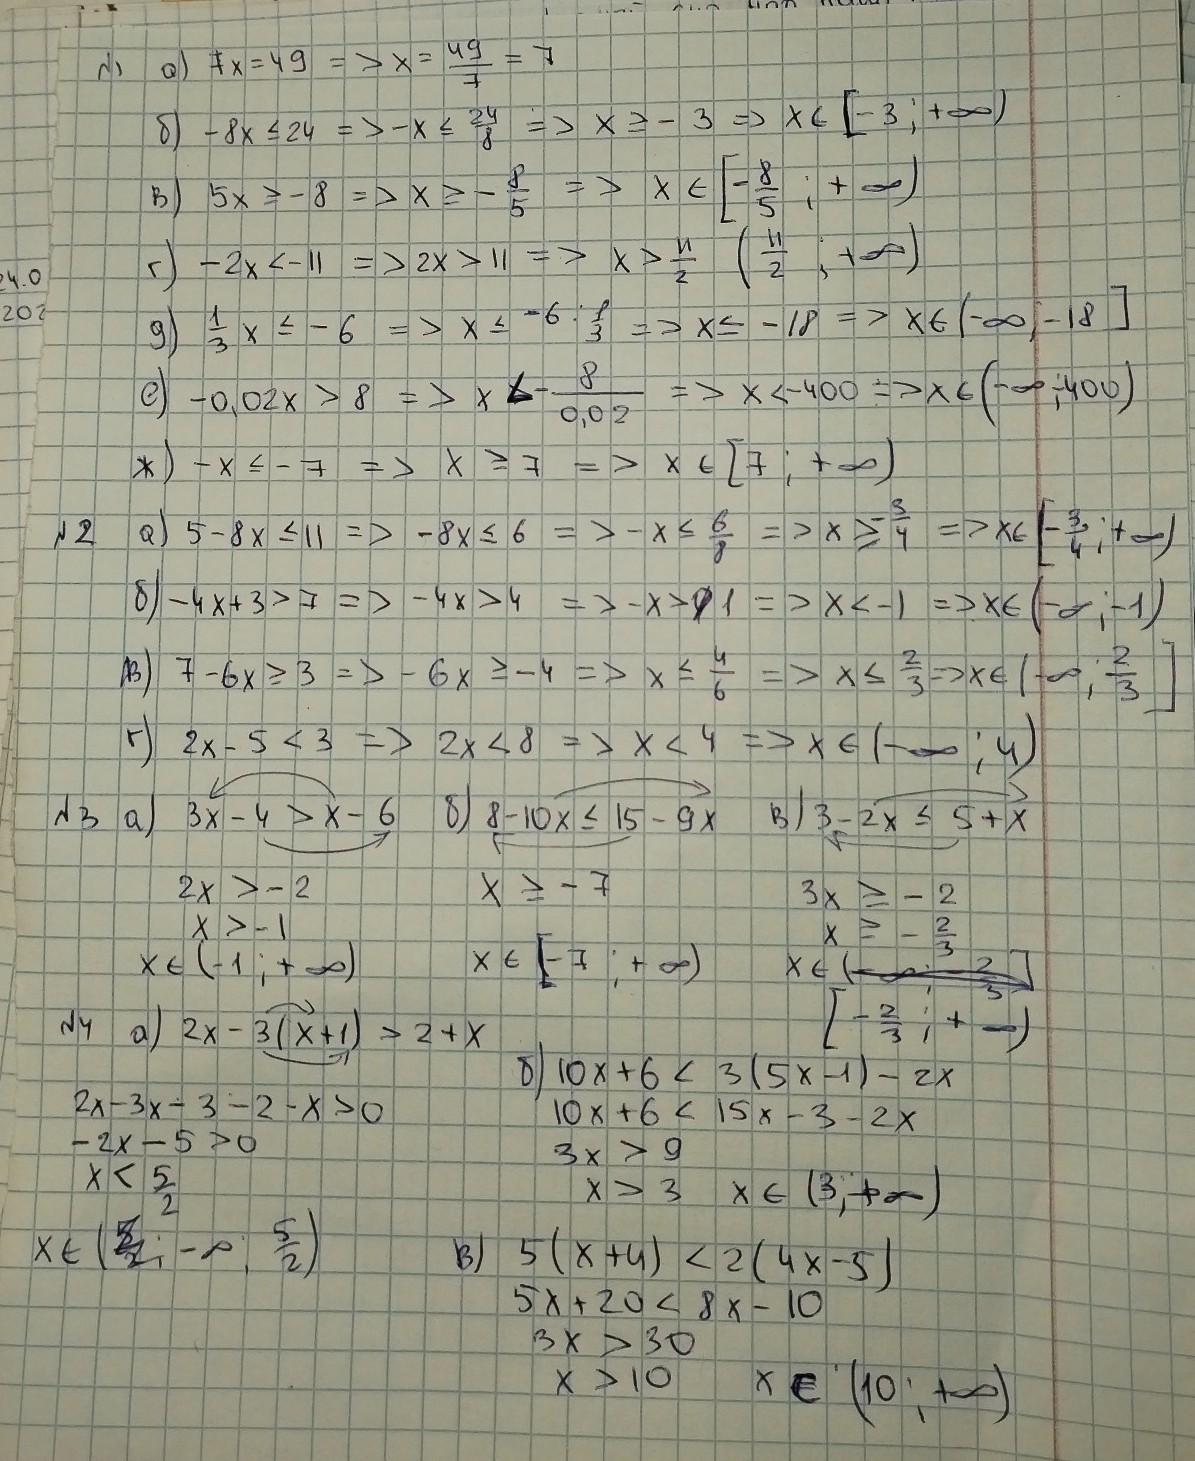 №1 а) 7x=49 => x = 49/7 = 7
б) -8x ≤ 24 => -x ≤ 24/8 => x ≥ -3 => x ∈ [-3 ; +∞)
в) 5x ≥ -8 => x ≥ -8/5 => x ∈ [-8/5 ; +∞)
г) -2x < -11 => 2x > 11 => x > 11/2 (11/2 ; +∞)
24.0
202
д) 1/3 x ≤ -6 => x ≤ -6 : 1/3 => x ≤ -18 => x ∈ (-∞; -18]
е) -0,02x > 8 => x < - 8/0,02 => x < -400 => x ∈ (-∞; -400)
ж) -x ≤ -7 => x ≥ 7 => x ∈ [7 ; +∞)
№2 а) 5-8x ≤ 11 => -8x ≤ 6 => -x ≤ 6/8 => x ≥ -3/4 => x ∈ [-3/4 ; +∞)
б) -4x+3 > 7 => -4x > 4 => -x > 1 => x < -1 => x ∈ (-∞ ; -1)
в) 7-6x ≥ 3 => -6x ≥ -4 => x ≤ 4/6 => x ≤ 2/3 => x ∈ (-∞ ; 2/3]
г) 2x-5 < 3 => 2x < 8 => x < 4 => x ∈ (-∞ ; 4)
№3 а) 3x-4 > x-6 б) 8-10x ≤ 15-9x в) 3-2x ≤ 5+x
2x > -2 x ≥ -7 3x ≥ -2
x > -1 x ≥ -2/3
x ∈ (-1 ; +∞) x ∈ [-7 ; +∞) x ∈ (-∞ ; -2/3]
[-2/3 ; +∞)
№4 а) 2x-3(x+1) > 2+x
б) 10x+6 < 3(5x-1) - 2x
2x-3x-3-2-x > 0
10x+6 < 15x-3-2x
-2x-5 > 0
3x > 9
x < 5/2
x > 3 x ∈ (3; +∞)
x ∈ (-∞ ; 5/2)
в) 5(x+4) < 2(4x-5)
5x+20 < 8x-10
3x > 30
x > 10 x ∈ (10 ; +∞)